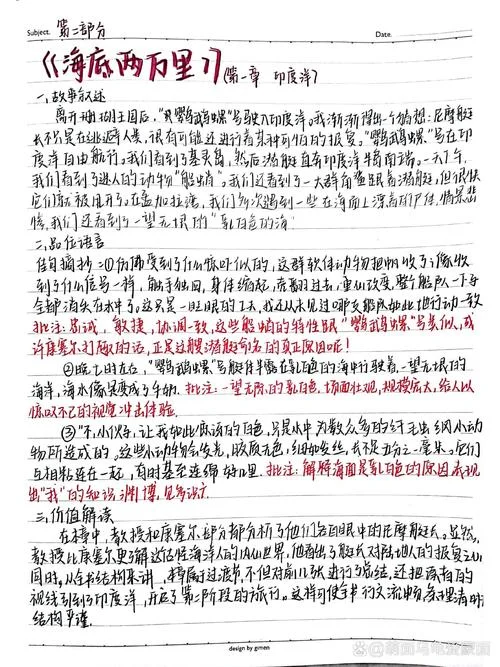 Subject. 第二部分
《海底两万里》(第一章 印度洋)
一、故事叙述
离开珊瑚王国后，"鹦鹉螺"号驶入印度洋。我渐渐得出一个猜想：尼摩艇
长不只是在逃避人类，很有可能还进行着某种可怕的报复。"鹦鹉螺"号在印
度洋自由航行。我们看到了基灵岛，然后潜艇直奔印度洋端南端。一天下午，
我们看到了迷人的动物"船蛸"。我们还看到了一大群角鲨跟着潜艇，但很快
它们就被甩开了。在孟加拉湾，我们多次遇到一些在海面上漂着的尸体，情景悲
惨，我们还看到了一望无垠的"乳白色的海"
二、品位语言
佳句摘抄：①仿佛受到了什么惊吓似的，这群软体动物把帆收了，像收
到了什么信号一样，触手缩回，身体缩起，底朝过去，重心改变，整个船队一下子
全都消失在水中了。这只是一眨眼的工夫，我还从未见过哪支船队如此地行动一致
批注：忠诚，敏捷，协调一致，这些船蛸的特性跟"鹦鹉螺"号类似，或
许康塞尔打趣的话，正是这艘潜艇命名的真正原因呢！
②晚七时左右，"鹦鹉螺"号艇体半露在乳白色的海中行驶着，一望无垠的
海洋，海水像是变成了牛奶。批注：一望无际的乳白色，场面壮观，规模庞大，给人以
惊叹不已的视觉冲击体验。
③"不，小伙子，让我如此惊讶的白色，只是水中为数众多的纤毛虫细小动
物所造成的。这些小动物会发光，胶质无色，细如发丝，长不足五分之一毫米。它们
互相粘连在一起，有时甚至连绵好几里。批注：解释海面是乳白色的原因，表现
出"我"的知识渊博，见多识广。
三、价值解读
在本章中，教授和康塞尔部分都分析了他们各自眼中的尼摩艇长。显然，
教授比康塞尔更了解这位怪海洋人的内心世界，他看出了艇长对陆地人的报复之心
同时，从全书结构来讲，本章属于过渡节，不但对前几张进行了总结，还把读者的
视线引到了印度洋，开启了第二阶段的旅行。这样可使全书行文流畅，条理清晰
结构严谨。
design by gimen